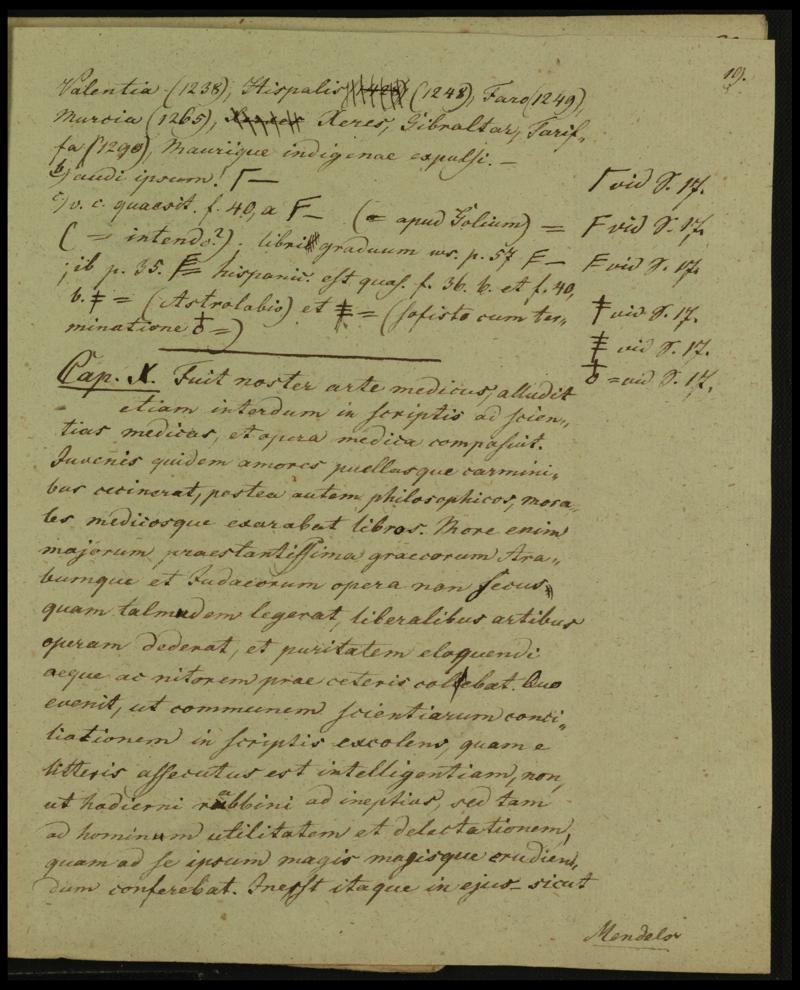 19.
Valentia (1238), Hispalis (1248), Faro (1249),
Murcia (1265), Xeres, Gibraltar, Tarif-
fa (1290), Maurique indigenae expulsi. —
b) audi ipsum! Γ —
Γ vid S. 17.
c) v. c. quaesit. f. 40, a F — (= apud Golium) =
F vid S. 17.
(= intendo?). libri graduum ws. p. 57 F —
F vid S. 17.
; ib p. 35. F = hispanic. est quaes. f. 36. b. et f. 40,
b. ‡ = (Astrolabio) et ‡ = (sofisto cum ter-
‡ vid S. 17.
minatione ♁ =)
‡ vid S. 17.
♁ = vid S. 17.
Cap. X. Fuit noster arte medicus, alludit
etiam interdum in scriptis ad scien-
tias medicas, et opera medica composuit.
Juvenis quidem amores puellasque carmini-
bus cecinerat, postea autem philosophicos, mora-
les medicosque exarabat libros. More enim
majorum praestantissima graecorum Ara-
bumque et Judaeorum opera non secus
quam talmudem legerat, liberalibus artibus
operam dederat, et puritatem eloquendi
aeque ac nitorem prae ceteris colebat. Quo
evenit, ut communem scientiarum conci-
liationem in scriptis excolens, quam e
litteris assecutus est intelligentiam, non,
ut hodierni rabbini ad ineptias, sed tam
ad hominum utilitatem et delectationem,
quam ad se ipsum magis magisque erudien-
dum conferebat. Inest itaque in ejus sicut
Mendels